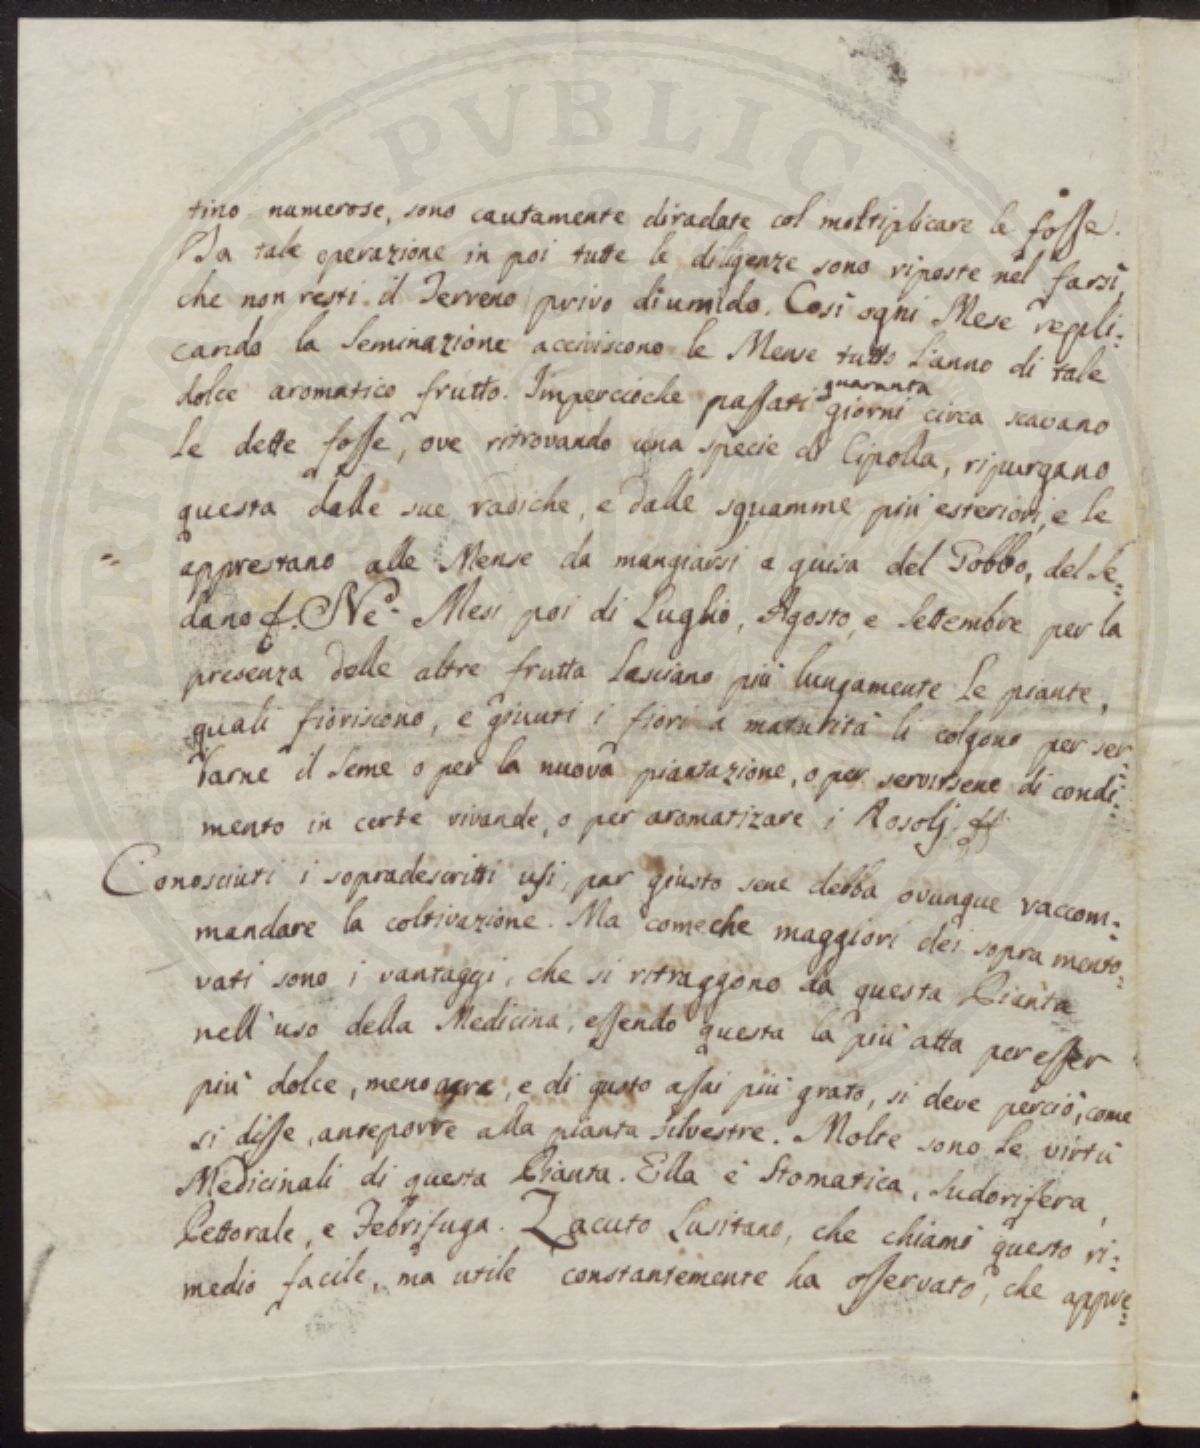 tino numerose, sono cautamente diradate col moltiplicare le fosse.
Da tale operazione in poi tutte le diligenze sono riposte nel farsi,
che non resti il Terreno privo di umido. Così ogni Mese repli:
cando la Seminazione acciviscono le Mense tutto l'anno di tale
dolce aromatico frutto. Imperciocche passati quaranta giorni circa scavano
le dette fosse, ove ritrovando una specie di Cipolla, ripurgano
questa dalle sue radiche, e dalle squamme più esteriori, e le
apprestano alle Mense da mangiarsi a guisa del Gobbo, del Se:
dano &. Ne' Mesi poi di Luglio, Agosto, e Settembre per la
presenza delle altre frutta lasciano più lungamente le piante,
quali fioriscono, e giunti i fiori a maturità li colgono per ser:
varne il Seme o per la nuova piantazione, o per servirsene di condi:
mento in certe vivande, o per aromatizare i Rosolj &
Conosciuti i sopradescritti usi, par giusto sene debba ovunque raccom:
mandare la coltivazione. Ma comeche maggiori dei sopra mento:
vati sono i vantaggi, che si ritraggono da questa Pianta
nell'uso della Medicina, essendo questa la più atta per esser
più dolce, meno acre, e di gusto assai più grato, si deve perciò, come
si disse, anteporre alla pianta silvestre. Molte sono le virtù
Medicinali di questa Pianta. Ella è Stomatica, Sudorifera,
Pettorale, e Febrifuga. Zacuto Lusitano, che chiamò questo ri:
medio facile, ma utile constantemente ha osservato, che appre:
PVBLICA
VERITA